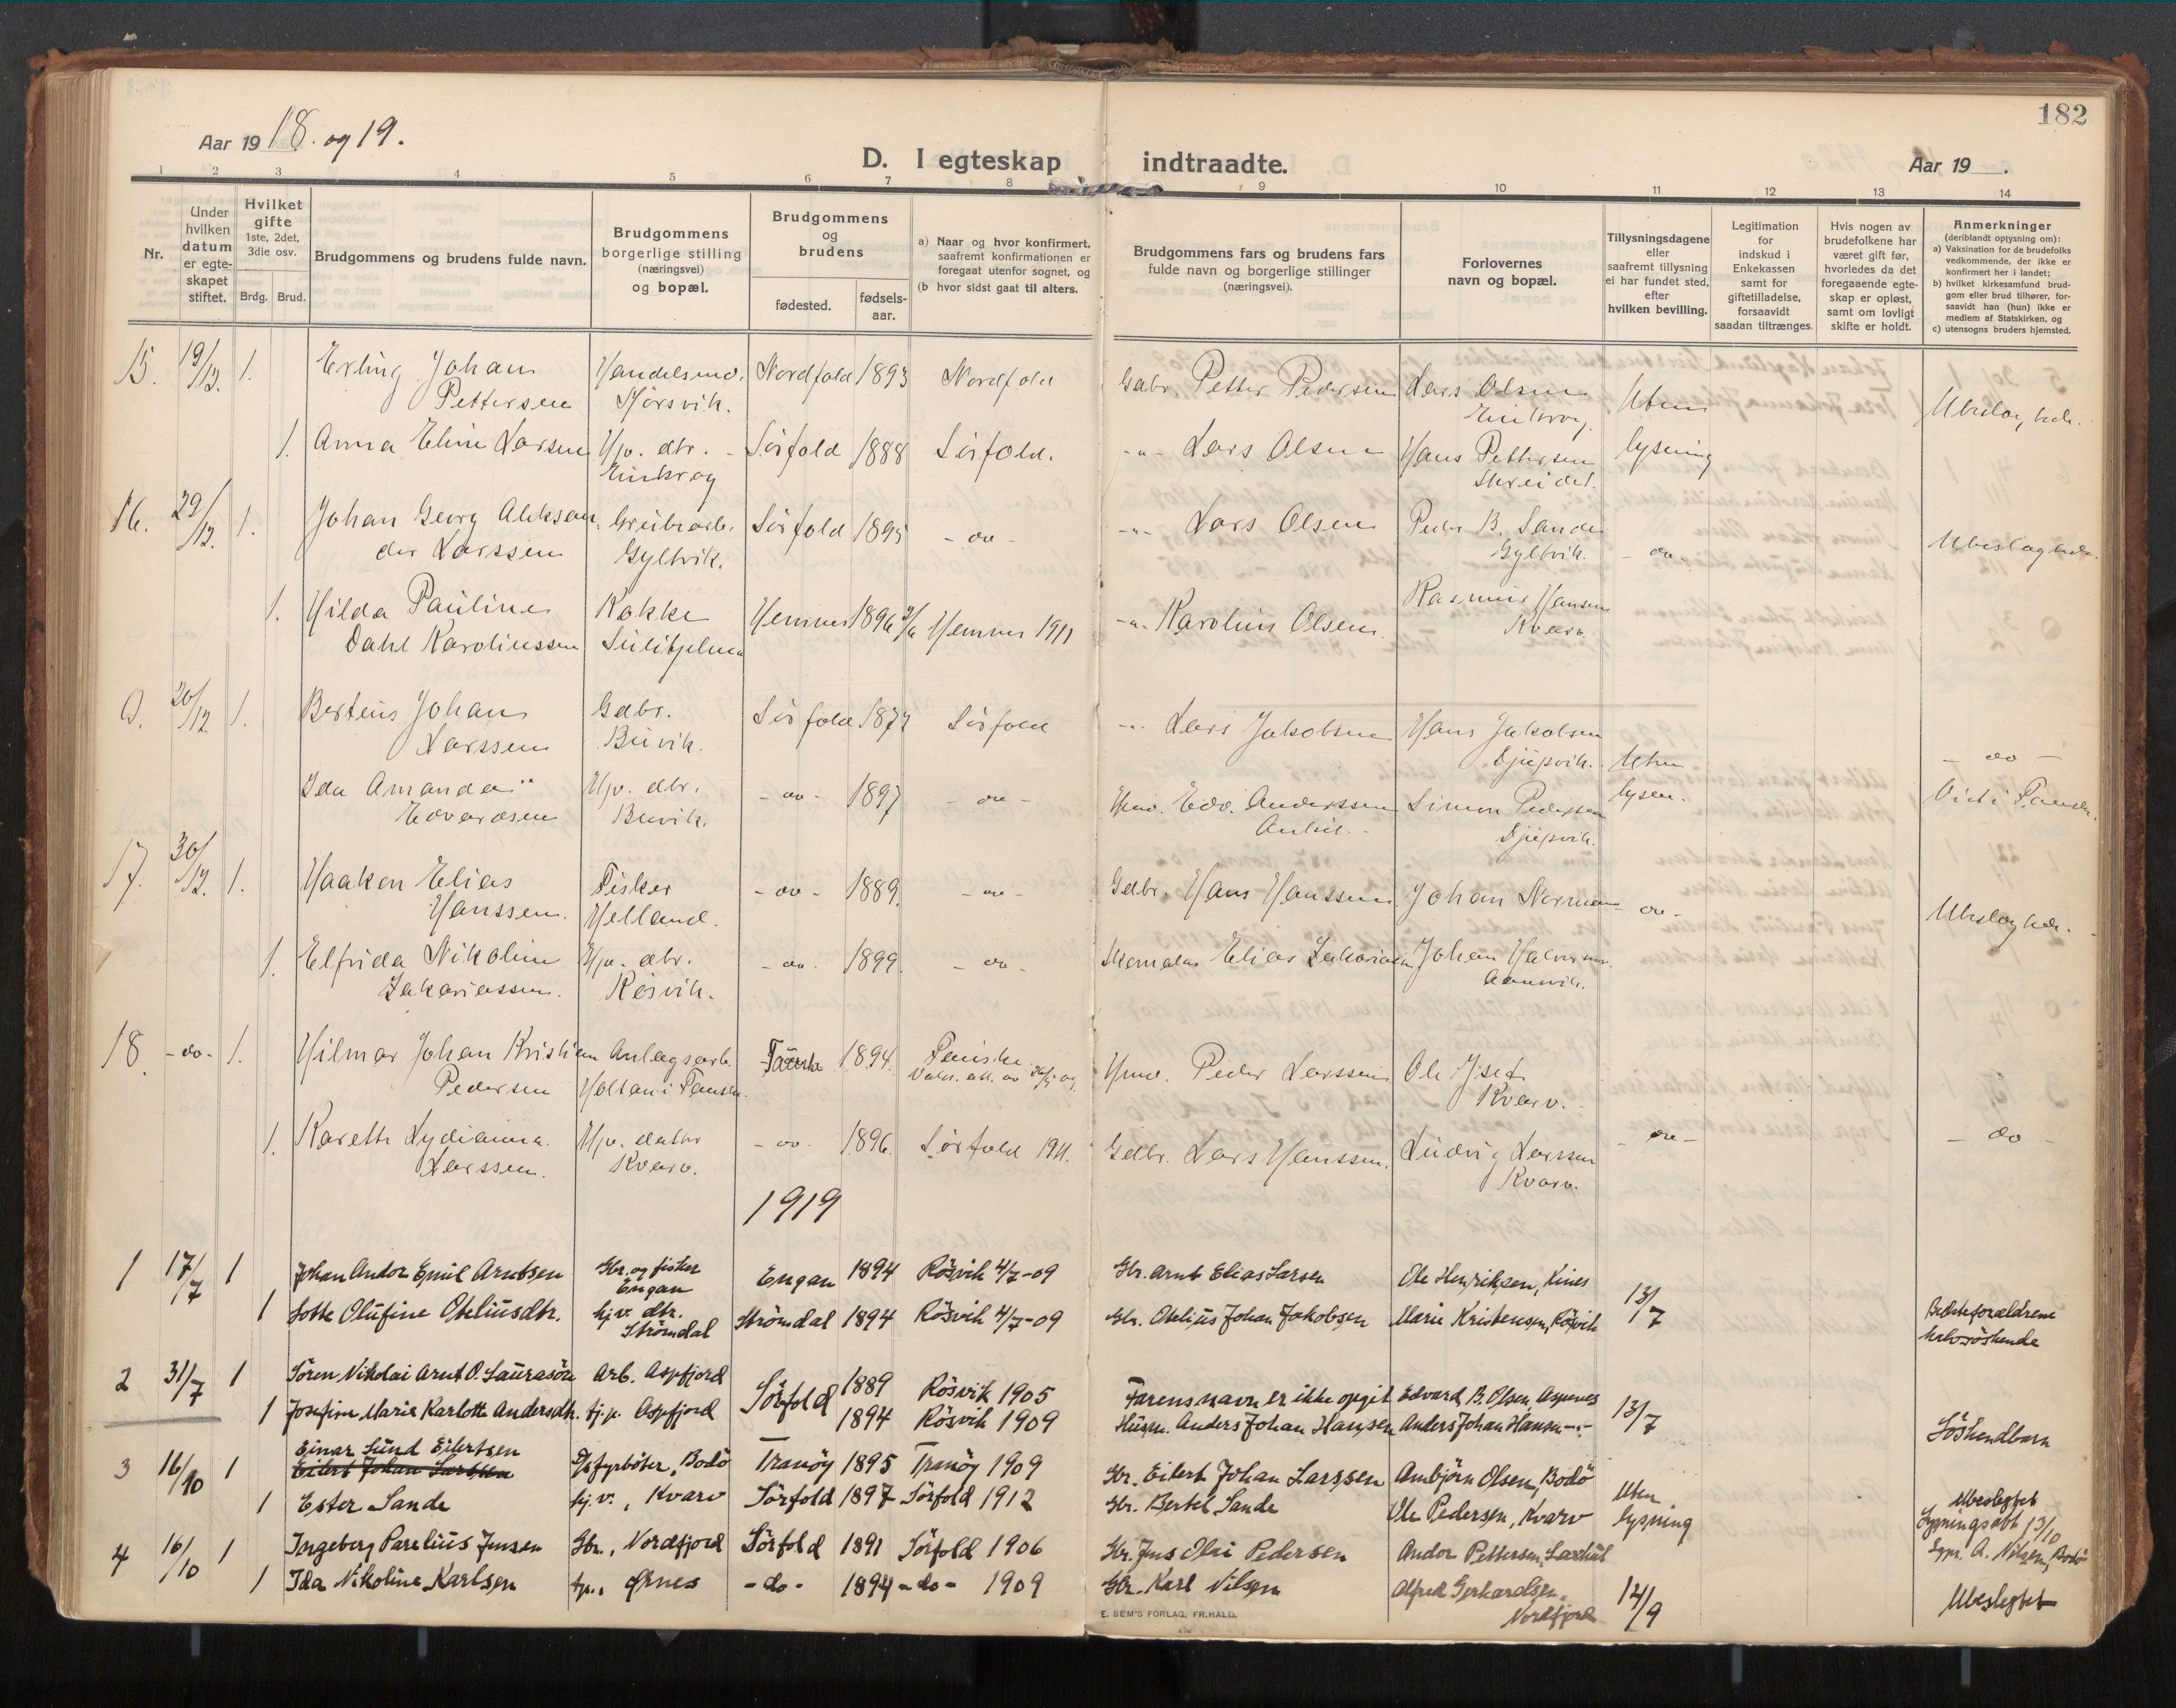 182
Aar 1918. og 19.
D. I egteskap indtraadte.
Aar 19 .
1 2 3 4 5 6 7 8 9 10 11 12 13 14
Nr.
Under hvilken datum er egte-skapet stiftet.
Hvilket gifte 1ste, 2det, 3die osv.
Brdg. Brud.
Brudgommens og brudens fulde navn.
Brudgommens borgerlige stilling (næringsvei) og bopæl.
Brudgommens og brudens
fødested.
fødsels-aar.
a) Naar og hvor konfirmert, saafremt konfirmationen er foregaat utenfor sognet, og
(b hvor sidst gaat til alters.
Brudgommens fars og brudens fars fulde navn og borgerlige stillinger (næringsvei).
Forlovernes navn og bopæl.
Tillysningsdagene eller saafremt tillysning ei har fundet sted, efter hvilken bevilling.
Legitimation for indskud i Enkekassen samt for giftetilladelse, forsaavidt saadan tiltrænges.
Hvis nogen av brudefolkene har været gift før, hvorledes da det foregaaende egte-skap er opløst, samt om lovligt skifte er holdt.
Anmerkninger (deriblandt opjysning om):
a) Vaksination for de brudefolks vedkommende, der ikke er konfirmert her i landet;
b) hvilket kirkesamfund brud-gom eller brud tilhører, for-saavidt han (hun) ikke er medlem af Statskirken, og
c) utensogns bruders hjemsted.
15. 19/12. 1. Erling Johan Handelsmd. Nordfold 1893 Nordfold Gdbr. Petter Pedersen Lars Olsen Uten
Pettersen Hørsvik.
1. Anna Eline Larsen Hjv. dtr. Sørfold 1888 Sørfold. -"- Lars Olsen Hans Pettersen lysning
16. 29/12. 1. Johan Georg Aleksan Grubearb. Sørfold 1895 - do - -"- Lars Olsen Peder B. Sande - do -
der Larssen Gyltvik. Gyltvik.
1. Hilda Pauline Kokke Hemnes 1896 Hemnes 1911 -"- Karolius Olsen. Rasmus Hansen
Dahl Karoliussen Sulitjelma Kvarv.
9. 20/12. 1. Berteus Johan Gdbr. Sørfold 1877 Sørfold -"- Lars Jakobsen Hans Jakobsen
Larssen Buvik. Djupvik. Uten - do -
Ida Amanda Hjv. dtr. - do - 1897 - do - Edv. Anderssen Simon Pedersen lysn.
Edvardsen Buvik. Djupvik.
17. 30/12. 1. Haaken Elias Fisker - do - 1889. - do - Gdbr. Hans Hanssen. Johan - do -
Hanssen. Helland.
1. Elfrida Nikoline Hjv. dtr. - do - 1899. - do - Elias Zakariassen Johan
Zakariassen. Røsvik.
18. - do - 1. Hilmar Johan Kristian Anlægsarb. Fauske 1894. Fauske Peder Larssen Ole
Pedersen i Fauske. Kvarv.
1. Karethe Lydianna Hjv. datter - do - 1896. Sørfold 1911. Gdbr. Lars Hanssen. Ludvig Larssen - do - - do -
Larssen. Kvarv. Kvarv.
1919
1 17/7 1 Johan Andor Emil Arntsen Gbr. og fisker Engan 1894 Rösvik 4/7-09 Gbr. Arnt Elias Larsen Ole Henriksen, Kines 13/7
Engan
1 Lotte Olufine Oteliusdtr. hj.v. dtr. Strömdal 1894 Rösvik 4/7-09 Gbr. Otelius Johan Jakobsen Marie Kristensen, Rösvik Bedsteforældrene
Strömdal halvsöskende
2 31/7 1 Sören Nikolai Arnt O. Laurasön Arb. Aspfjord Sörfold 1889 Rösvik 1905 Farens navn er ikke opgit Edvard B. Olsen, Aspenes 13/7
1 Josefine Marie Karlotte Andersdtr. hj.p. Aspfjord 1894 Rösvik 1909 Husm. Anders Johan Hansen Anders Johan Hansen -"- Söskendbarn
Einar Sund Eilertsen
3 16/10 1 Eilert Johan Larssen Fyrböter, Bodö Tranöy 1895 Tranöy 1909 Gbr. Eilert Johan Larssen Arnbjörn Olsen, Bodö Uten
1 Ester Sande hj.v., Kvarv Sörfold 1897 Sörfold 1912 Gbr. Bertel Sande Ole Pedersen, Kvarv lysning Ubeslegtet
Lysningsatt 13/10
4 16/10 1 Ingeberg Parelius Jensen Gbr., Nordfjord Sörfold 1891 Sörfold 1906 Gbr. Jens Olai Pedersen Andor Pettersen, A. Nilsen, Bodö
1 Ida Nikoline Karlsen tp., Ørnes - do - 1894 - do - 1909 Gbr. Karl Nilsen Alfred Gerhardsen, 14/9 Ubeslegtet
Nordfjord
E. SEM'S FORLAG, FR.HALD.